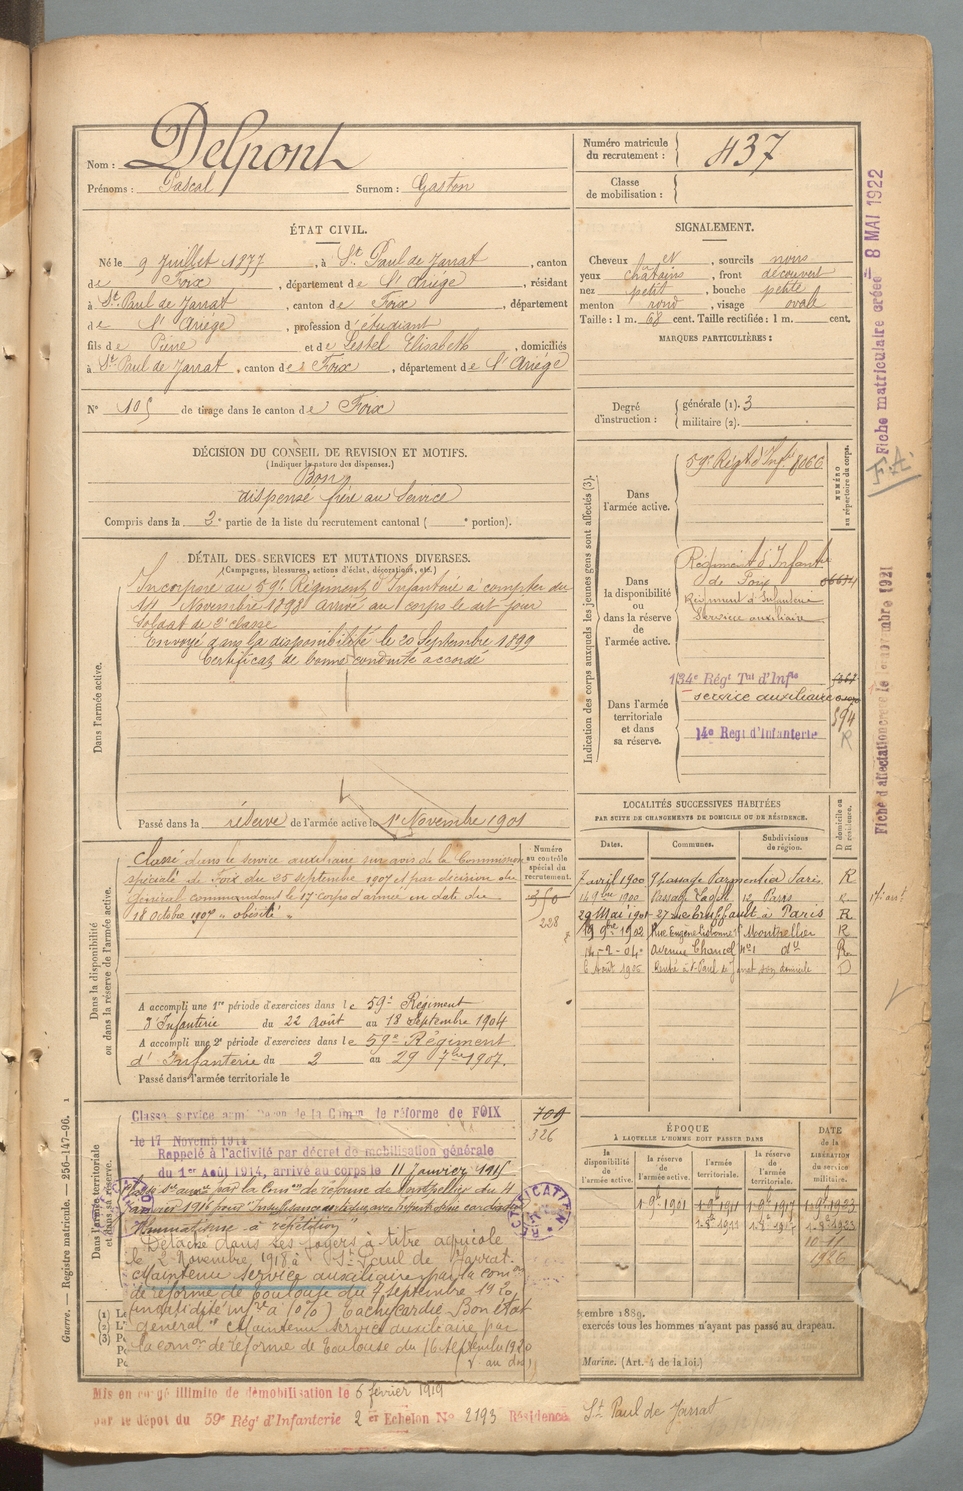 Nom : Delpont
Prénoms : Pascal Surnom : Gaston
Numéro matricule du recrutement : 437
Classe de mobilisation :
ÉTAT CIVIL.
Né le 9 Juillet 1877, à St Paul de Jarrat, canton
de Foix, département de l'Ariége, résidant
à St Paul de Jarrat, canton de Foix, département
de l'Ariége, profession d'étudiant
fils de Pierre et de Sestel Elisabeth, domiciliés
à St Paul de Jarrat, canton de Foix, département de l'Ariége
N° 105 de tirage dans le canton de Foix
SIGNALEMENT.
Cheveux et, sourcils noirs
yeux châtains, front découvert
nez petit, bouche petite
menton rond, visage ovale
Taille : 1 m. 68 cent. Taille rectifiée : 1 m. cent.
MARQUES PARTICULIÈRES :
Degré d'instruction : générale (1). 3
militaire (2).
DÉCISION DU CONSEIL DE REVISION ET MOTIFS.
(Indiquer la nature des dispenses.)
Bon
dispensé frère au Service
Compris dans la 2e partie de la liste du recrutement cantonal ( e portion).
DÉTAIL DES SERVICES ET MUTATIONS DIVERSES.
(Campagnes, blessures, actions d'éclat, décorations, etc.)
Dans l'armée active.
Incorporé au 59e Régiment d'Infanterie à compter du
14 Novembre 1898 arrivé au corps le dit jour
Soldat de 2e classe
Envoyé dans la disponibilité le 20 Septembre 1899
Certificat de bonne conduite accordé
Passé dans la réserve de l'armée active le 1er Novembre 1901
Indication des corps auxquels les jeunes gens sont affectés (3).
NUMÉRO au répertoire du corps.
Dans l'armée active.
59e Régt d'Inf. 8066
Dans la disponibilité ou dans la réserve de l'armée active.
Régiment d'Infanterie
de Foix
Régiment d'Infanterie
Service auxiliaire
Dans l'armée territoriale et dans sa réserve.
134e Régt Tal d'Infie
service auxiliaire
594
14e Regt d'Infanterie R
Dans la disponibilité ou dans la réserve de l'armée active.
Numéro au contrôle spécial du recrutement.
Classé dans le service auxiliaire sur avis de la Commission
spéciale de Foix du 25 septembre 1907 et par décision du
Général commandant le 17e corps d'armée en date du
18 Octobre 1907 "obésité"
228
A accompli une 1re période d'exercices dans le 59e Régiment
d'Infanterie du 22 Août au 18 Septembre 1904
A accompli une 2e période d'exercices dans le 59e Régiment
d'Infanterie du 2 au 29 7bre 1907.
Passé dans l'armée territoriale le
LOCALITÉS SUCCESSIVES HABITÉES
PAR SUITE DE CHANGEMENTS DE DOMICILE OU DE RÉSIDENCE.
Dates. Communes. Subdivisions de région. D domicile ou R résidence.
7 avril 1900 9 passage Parmentier Paris R
14 9bre 1900 Passage 12 Paris R
29 Mai 1901 27 rue Truffault à Paris R
9bre 1902 Rue Eugène Lisbonne Montpellier R
14-2-04 Avenue Chancel n°1 do R
6 Août 1906 Rentré à St Paul de Jarrat son domicile D
Dans l'armée territoriale et dans sa réserve.
Classé service armé de la Comm de réforme de FOIX
le 17 Novemb 1914
Rappelé à l'activité par décret de mobilisation générale
du 1er Août 1914, arrivé au corps le 11 Janvier 1915
Passé Sce auxre par la Comon de réforme de Montpellier du 4
janvier 1916 pour
Rhumatisme à répétition"
Détaché dans ses foyers à titre agricole
le 2 Novembre 1918 à St Paul de Jarrat.
Maintenu service auxiliaire par la comon
de réforme de Toulouse du 7 septembre 1920,
Invalidité infre à 10%) Tachycardie Bon état
général" Maintenu service auxiliaire par
la comon de réforme de Toulouse du 16 Septembre 1920
( au dos)
709
326
ÉPOQUE
À LAQUELLE L'HOMME DOIT PASSER DANS
la disponibilité de l'armée active. la réserve de l'armée active. l'armée territoriale. la réserve de l'armée territoriale.
DATE de la LIBÉRATION du service militaire.
1er 9bre 1901 1er 9bre 1911 1er 9bre 1917 1er 9bre 1923
10-11
1926
(1) Le
(2) L'
(3) Po
cembre 1889.
exercés tous les hommes n'ayant pas passé au drapeau.
Marine. (Art. 4 de la loi.)
Mis en congé illimité de démobilisation le 6 février 1919
par le dépôt du 59e Régt d'Infanterie 2 er Echelon N° 2193 Résidence St Paul de Jarrat
Guerre. — Registre matricule. — 256-147-96. 1
Fiche matriculaire créée 8 MAI 1922
F.A.
Fiche d'affectation créée le 1 novembre 1921